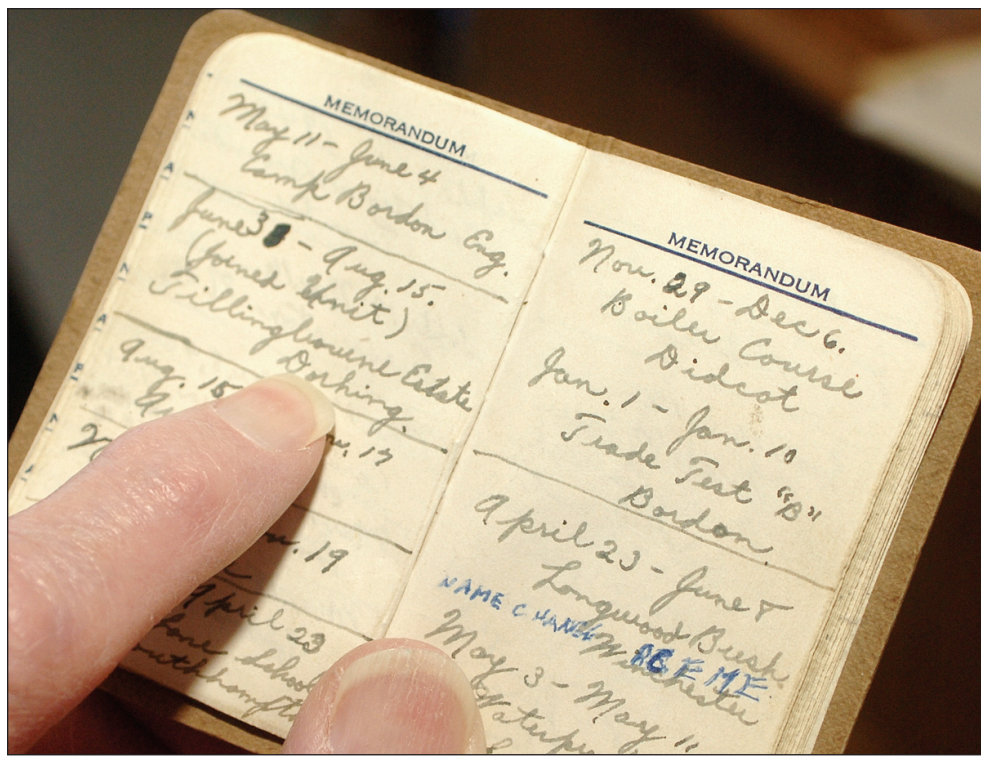 MEMORANDUM
May 11 - June 4
Camp Bordon Eng.
June 3 - Aug. 15.
(Joined Unit)
Tillingbourne Estate
Dorking.
Aug. 15
17
19
April 23
MEMORANDUM
Nov. 29 - Dec 6.
Boiler Course
Didcot
Jan. 1 - Jan. 10
Trade Test "B"
Bordon.
April 23 - June
Longwood Bush
Winchester
NAME CHANGE RCEME
May 3 - May 11